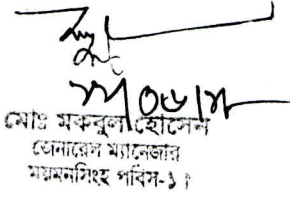 মোঃ মকবুল হোসেন
জেনারেল ম্যানেজার
ময়মনসিংহ পবিস-১।